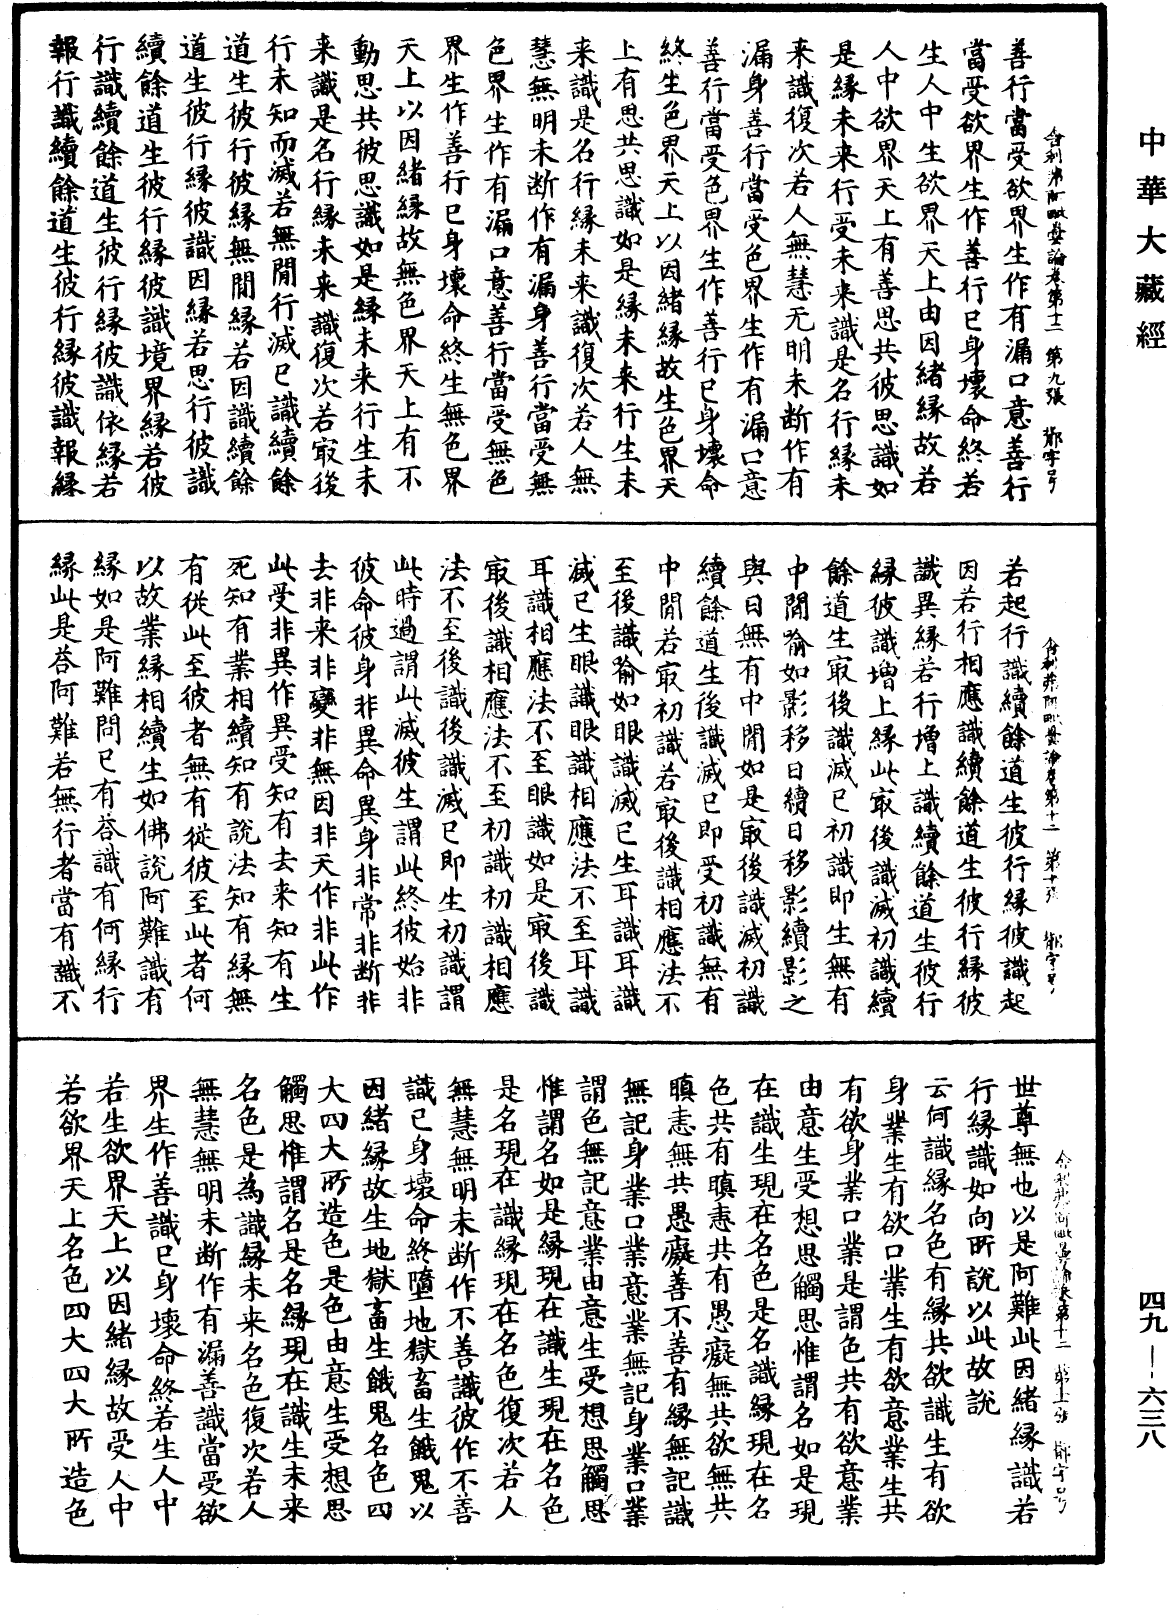 中華大藏經
四九—六三八
善行當受欲界生作有漏口意善行
舍利弗阿毗曇論卷第十二 第九張 鄰字号
當受欲界生作善行已身壞命終若
生人中生欲界天上由因緒緣故若
人中欲界天上有善思共彼思識如
是緣未来行受未来識是名行緣未
来識復次若人無慧无明未断作有
漏身善行當受色界生作有漏口意
善行當受色界生作善行已身壞命
終生色界天上以因緒緣故生色界天
上有思共思識如是緣未来行生未
来識是名行緣未来識復次若人無
慧無明未断作有漏身善行當受無
色界生作有漏口意善行當受無色
界生作善行已身壞命終生無色界
天上以因緒緣故無色界天上有不
動思共彼思識如是緣未来行生未
来識是名行緣未来識復次若㝡後
行未知而滅若無間行滅已識續餘
道生彼行彼緣無間緣若因識續餘
道生彼行緣彼識因緣若思行彼識
續餘道生彼行緣彼識境界緣若彼
行識續餘道生彼行緣彼識依緣若
報行識續餘道生彼行緣彼識報緣
若起行識續餘道生彼行緣彼識起
舍利弗阿毗曇論卷第十二 第十張
因若行相應識續餘道生彼行緣彼
識異緣若行增上識續餘道生彼行
緣彼識增上緣此㝡後識滅初識續
餘道生㝡後識滅已初識即生無有
中間喻如影移日續日移影續影之
與日無有中間如是㝡後識滅初識
續餘道生後識滅已即受初識無有
中間若㝡初識若㝡後識相應法不
至後識喻如眼識滅已生耳識耳識
滅已生眼識眼識相應法不至耳識
耳識相應法不至眼識如是㝡後識
㝡後識相應法不至初識初識相應
法不至後識後識滅已即生初識謂
此時過謂此滅彼生謂此終彼始非
彼命彼身非異命異身非常非断非
去非来非變非無因非天作非此作
此受非異作異受知有去来知有生
死知有業相續知有說法知有緣無
有從此至彼者無有從彼至此者何
以故業緣相續生如佛說阿難識有
緣如是阿難問已有荅識有何緣行
緣此是荅阿難若無行者當有識不
世尊無也以是阿難此因緒緣識若
舍利弗阿毗曇論卷第十二
行緣識如向所說以此故說
云何識緣名色有緣共欲識生有欲
身業生有欲口業生有欲意業生共
有欲身業口業是謂色共有欲意業
由意生受想思觸思惟謂名如是現
在識生現在名色是名識緣現在名
色共有瞋恚共有愚癡無共欲無共
瞋恚無共愚癡善不善有緣無記識
無記身業口業意業無記身業口業
謂色無記意業由意生受想思觸思
惟謂名如是緣現在識生現在名色
是名現在識緣現在名色復次若人
無慧無明未断作不善識彼作不善
識已身壞命終墮地獄畜生餓鬼以
因緒緣故生地獄畜生餓鬼名色四
大四大所造色是色由意生受想思
觸思惟謂名是名緣現在識生未来
名色是為識緣未来名色復次若人
無慧無明未断作有漏善識當受欲
界生作善識已身壞命終若生人中
若生欲界天上以因緒緣故受人中
若欲界天上名色四大四大所造色